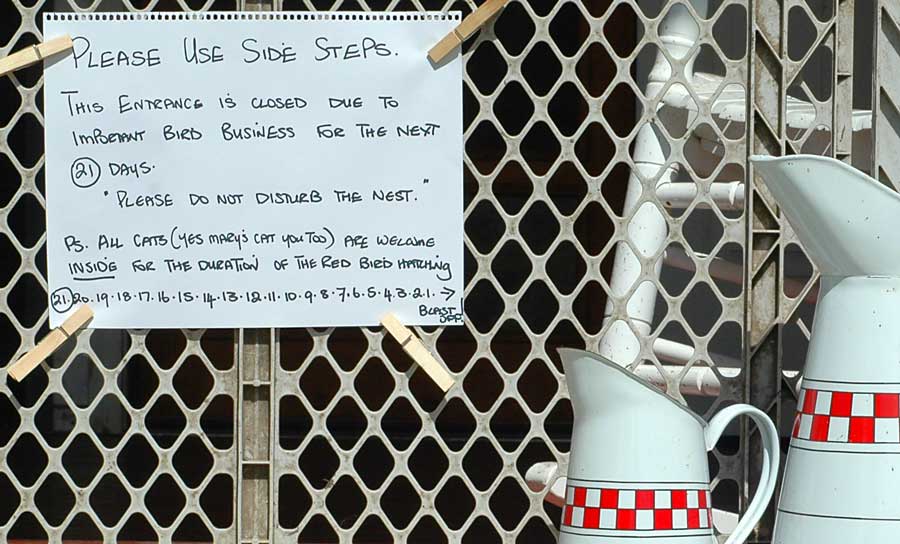 PLEASE USE SIDE STEPS.
THIS ENTRANCE IS CLOSED DUE TO
IMPORTANT BIRD BUSINESS FOR THE NEXT
21 DAYS.
"PLEASE DO NOT DISTURB THE NEST."
PS. ALL CATS (YES MARY'S CAT YOU TOO) ARE WELCOME
INSIDE FOR THE DURATION OF THE RED BIRD HATCHING
21·20·19·18·17·16·15·14·13·12·11·10·9·8·7·6·5·4·3·2·1·→
BLAST
OFF!